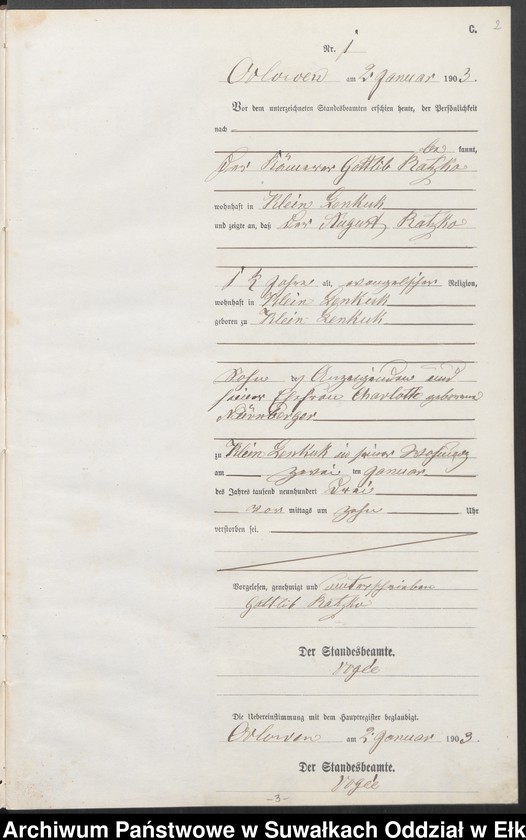 2
C.
Nr. 1
Orlowen am 2 Januar 1903.
Vor dem unterzeichneten Standesbeamten erschien heute, der Persönlichkeit
nach
be kannt,
der Kämerer Gottlib Ratzko
wohnhaft in Klein Lenkuk
und zeigte an, daß der August Ratzko
1 ½ Jahre alt, evangelischer Religion,
wohnhaft in Klein Lenkuk
geboren zu Klein Lenkuk
Sohn des Anzeigenden und
seiner Ehefrau Charlotte geborene
Nürnberger
zu Klein Lenkuk in seiner Wohnung
am zwei ten Januar
des Jahres tausend neunhundert drei
vor mittags um zehn Uhr
verstorben sei.
Vorgelesen, genehmigt und unterschrieben
Gottlib Ratzko
Der Standesbeamte.
Vogée
Die Uebereinstimmung mit dem Hauptregister beglaubigt.
Orlowen am 2 Januar 1903.
Der Standesbeamte.
Vogée
-3-
Archiwum Państwowe w Suwałkach Oddział w Ełku